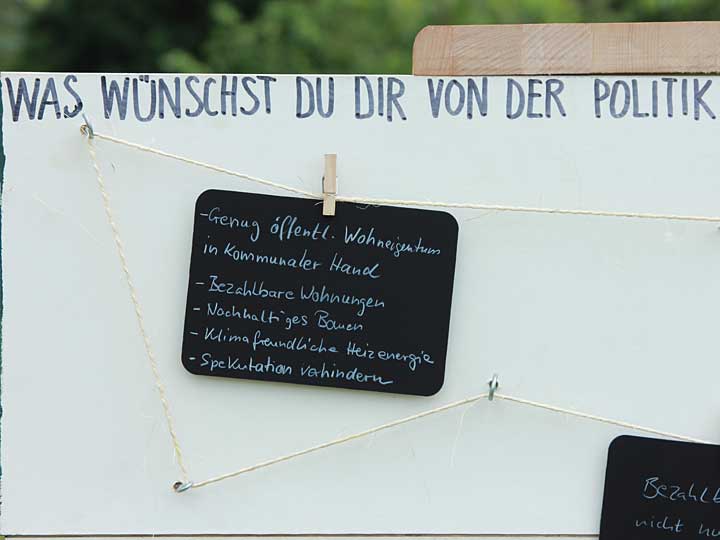 WAS WÜNSCHST DU DIR VON DER POLITIK
- Genug öffentl. Wohneigentum
in Kommunaler Hand
- Bezahlbare Wohnungen
- Nachhaltiges Bauen
- Klimafreundliche Heizenergie
- Spekulation verhindern
Bezahlb
nicht nu